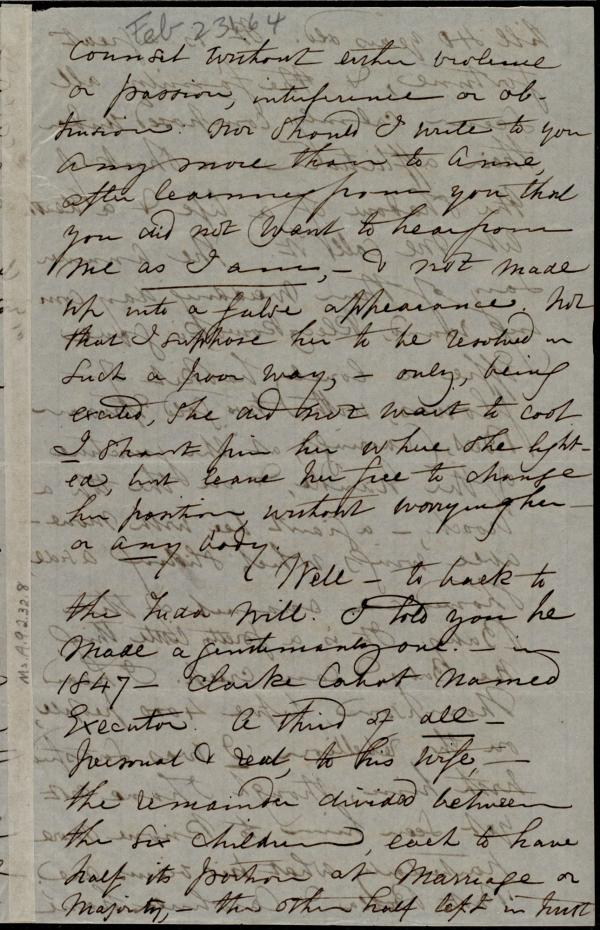 Feb 23/64
counsel without either violence
or passion, interference or ob-
trusion. Nor should I write to you
any more than to Anne,
after learning from you that
you did not want to hear from
me as I am, - & not made
up into a false appearance. Not
that I suppose her to be resolved in
such a poor way, - only, being
excited, she did not want to cool
I shant pin her where she light-
ed, but leave her free to change
her position, without worrying her -
or any body.
Well - to back to
the will. I told you he
made a gentlemanly one. - in
1847 - Clarke Cabot named
Executor. A third of all -
personal & real, to his wife, -
the remainder divided between
the six children, each to have
half its portion at Marriage or
Majority, - the other half left in trust
Ms.A.9.2.32.8